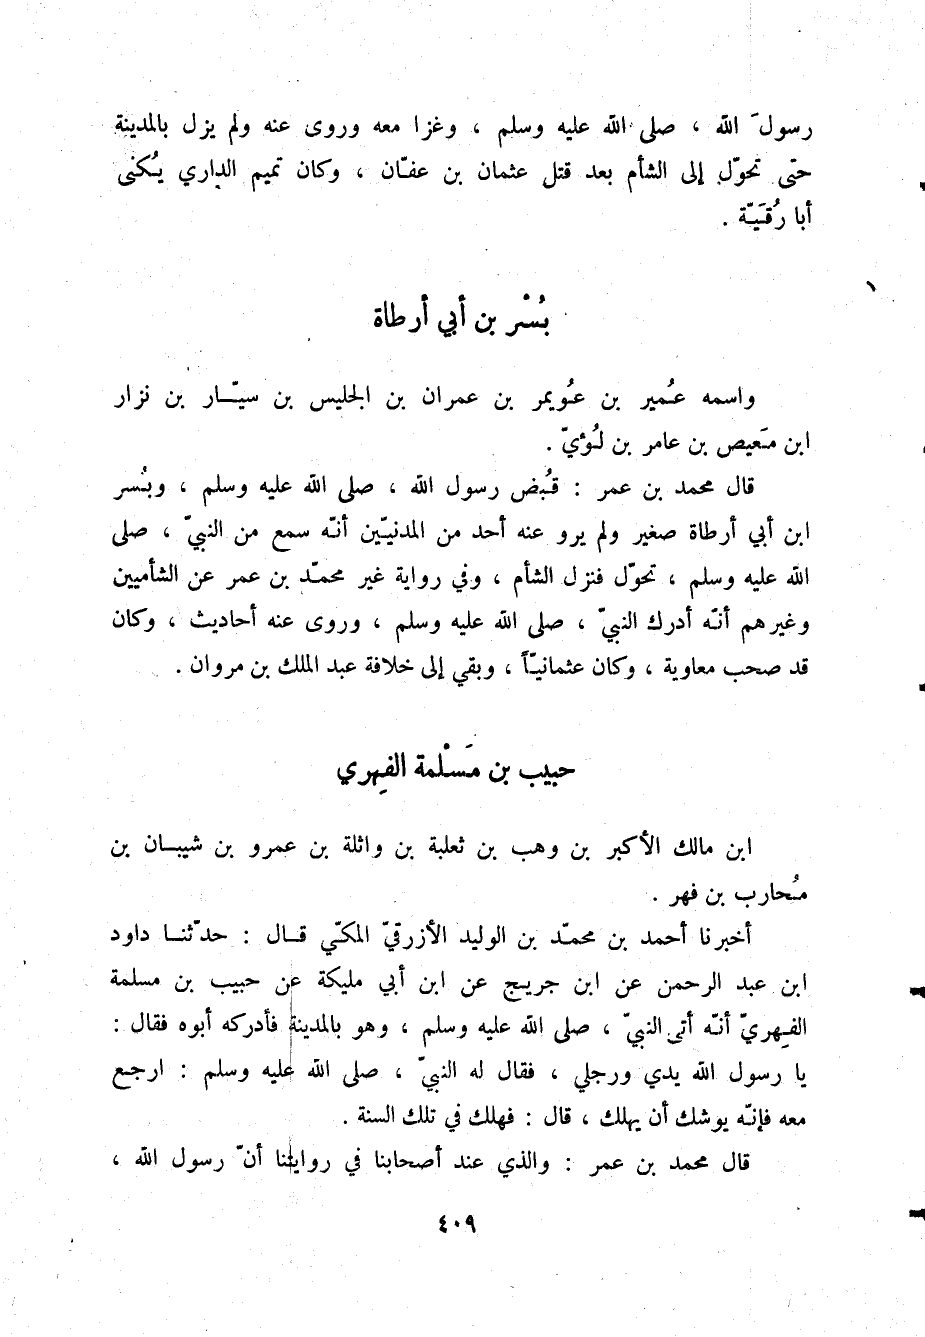 رسولَ الله ، صلى الله عليه وسلم ، وغزا معه وروى عنه ولم يزل بالمدينة
حتى تحوّل إلى الشأم بعد قتل عثمان بن عفّان ، وكان تميم الداري يُكنى
أبا رُقَيّة .
بُسْر بن أبي أرطاة
واسمه عُمير بن عُويمر بن عمران بن الحليس بن سيّار بن نزار
ابن مَعيص بن عامر بن لُؤيّ .
قال محمد بن عمر : قُبض رسول الله ، صلى الله عليه وسلم ، وبُسر
ابن أبي أرطاة صغير ولم يرو عنه أحد من المدنيّين أنّه سمع من النبيّ ، صلى
الله عليه وسلم ، تحوّل فنزل الشأم ، وفي رواية غير محمّد بن عمر عن الشأميين
وغيرهم أنّه أدرك النبيّ ، صلى الله عليه وسلم ، وروى عنه أحاديث ، وكان
قد صحب معاوية ، وكان عثمانيّاً ، وبقي إلى خلافة عبد الملك بن مروان .
حبيب بن مَسْلمة الفِهري
ابن مالك الأكبر بن وهب بن ثعلبة بن واثلة بن عمرو بن شيبان بن
مُحارب بن فهر .
أخبرنا أحمد بن محمّد بن الوليد الأزرقيّ المكّي قال : حدّثنا داود
ابن عبد الرحمن عن ابن جريج عن ابن أبي مليكة عن حبيب بن مسلمة
الفِهريّ أنّه أتى النبيّ ، صلى الله عليه وسلم ، وهو بالمدينة فأدركه أبوه فقال :
يا رسول الله يدي ورجلي ، فقال له النبيّ ، صلى الله عليه وسلم : ارجع
معه فإنّه يوشك أن يهلك ، قال : فهلك في تلك السنة .
قال محمد بن عمر : والذي عند أصحابنا في روايتنا أنّ رسول الله ،
٤٠٩